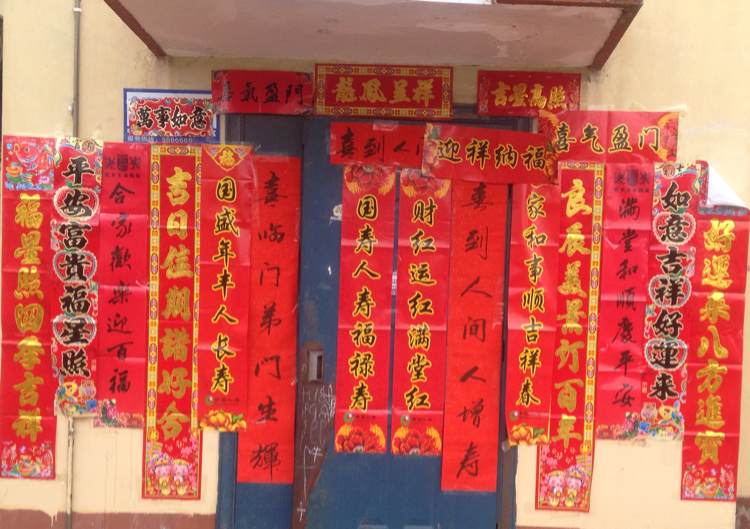 喜氣盈門
龍鳳呈祥
吉星高照
萬事如意
喜到人
迎祥纳福
喜气盈门
福星照四季吉祥
平安富貴福星照
合家歡樂迎百福
吉日佳期諧好合
国盛年丰人长寿
喜临门第门生輝
国寿人寿福禄寿
财红运红满堂红
喜到人间人增寿
家和事顺吉祥春
良辰美景订百年
满堂和順慶平安
如意吉祥好運来
好運来八方進寶